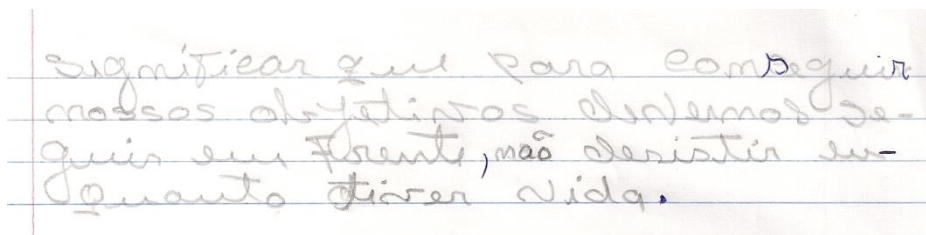 significar que para conseguir
nossos objetivos devemos se-
guir em frente, não desistir en-
quanto tiver vida.